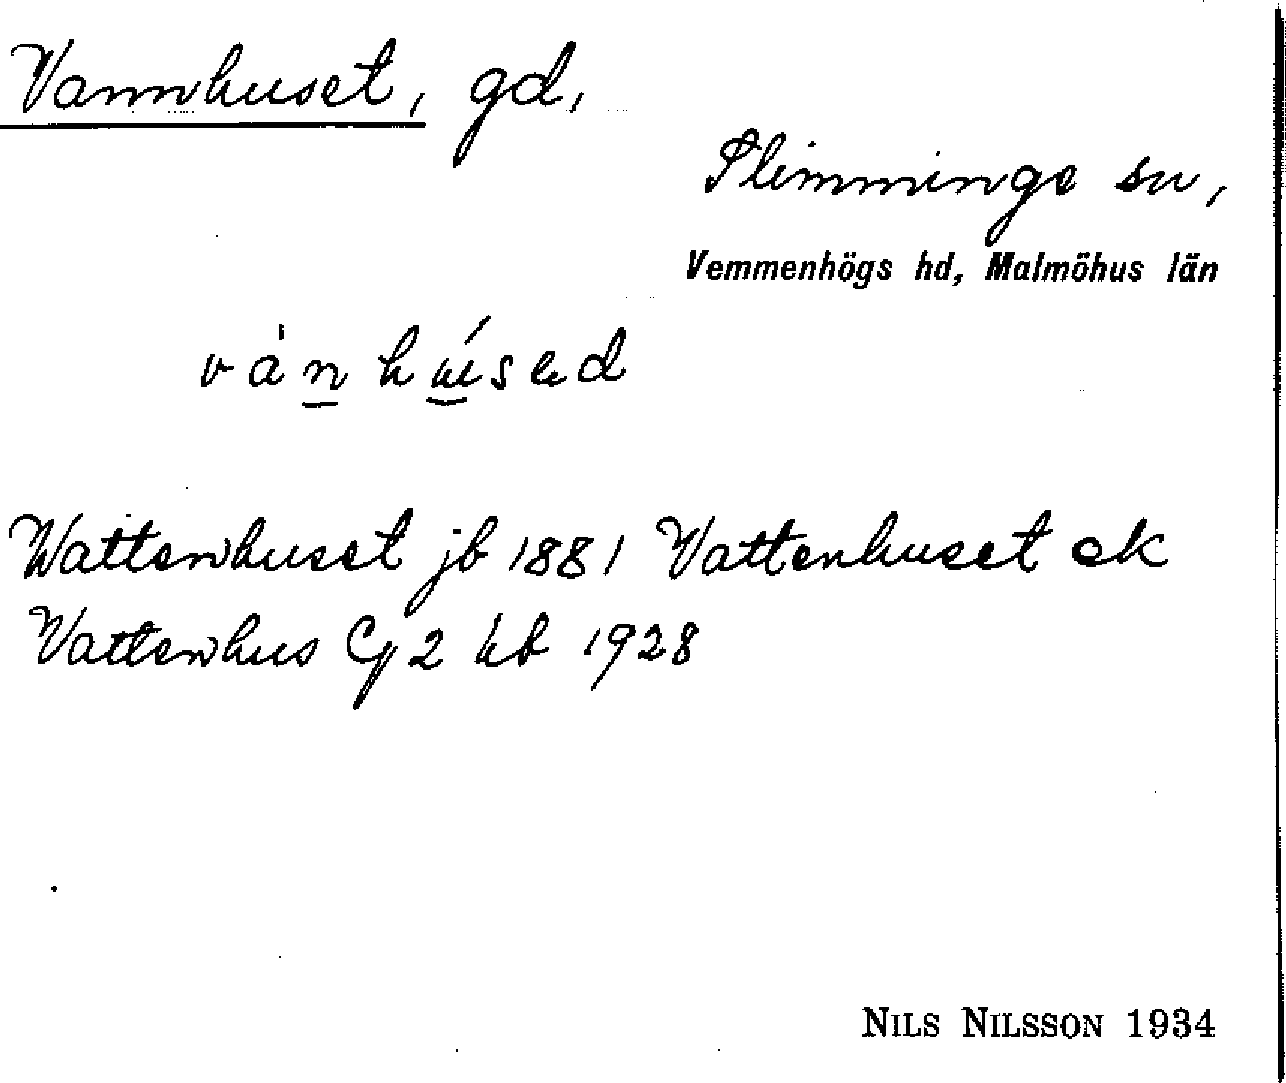 Vannhuset, gd,
Slimminge sn,
Vemmenhögs hd, Malmöhus län
Wattenhuset jb 1881 Vattenhuset ek
Vattenhus Cg 2 kb 1928
NILS NILSSON 1934